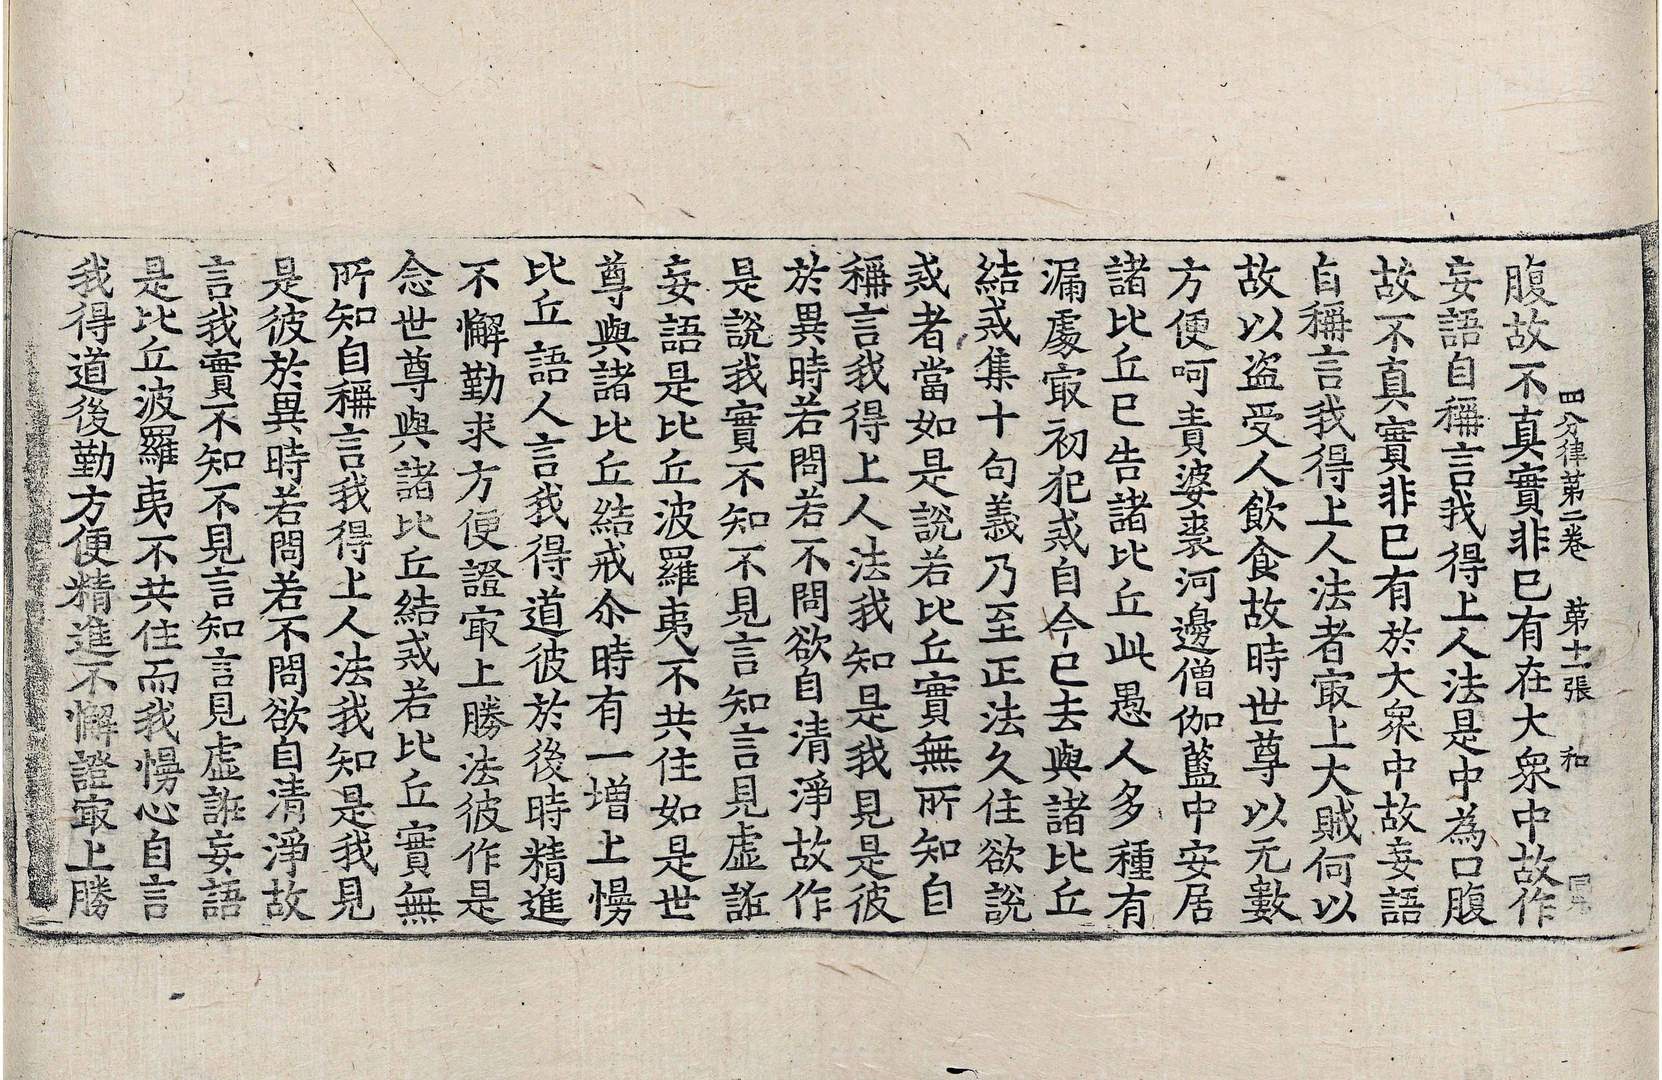 四分律第二卷　第十一張　和
腹故不真實非已有在大衆中故作
妄語自稱言我得上人法是中為口腹
故不真實非已有於大衆中故妄語
自稱言我得上人法者㝡上大賊何以
故以盗受人飲食故時世尊以无數
方便呵責婆裘河邊僧伽藍中安居
諸比丘已告諸比丘此愚人多種有
漏處㝡初犯戒自今已去與諸比丘
結戒集十句義乃至正法久住欲說
戒者當如是說若比丘實無所知自
稱言我得上人法我知是我見是彼
於異時若問若不問欲自清淨故作
是說我實不知不見言知言見虛誑
妄語是比丘波羅夷不共住如是世
尊與諸比丘結戒尒時有一增上慢
比丘語人言我得道彼於後時精進
不懈勤求方便證㝡上勝法彼作是
念世尊與諸比丘結戒若比丘實無
所知自稱言我得上人法我知是我見
是彼於異時若問若不問欲自清淨故
言我實不知不見言知言見虛誑妄語
是比丘波羅夷不共住而我慢心自言
我得道後勤方便精進不懈證㝡上勝